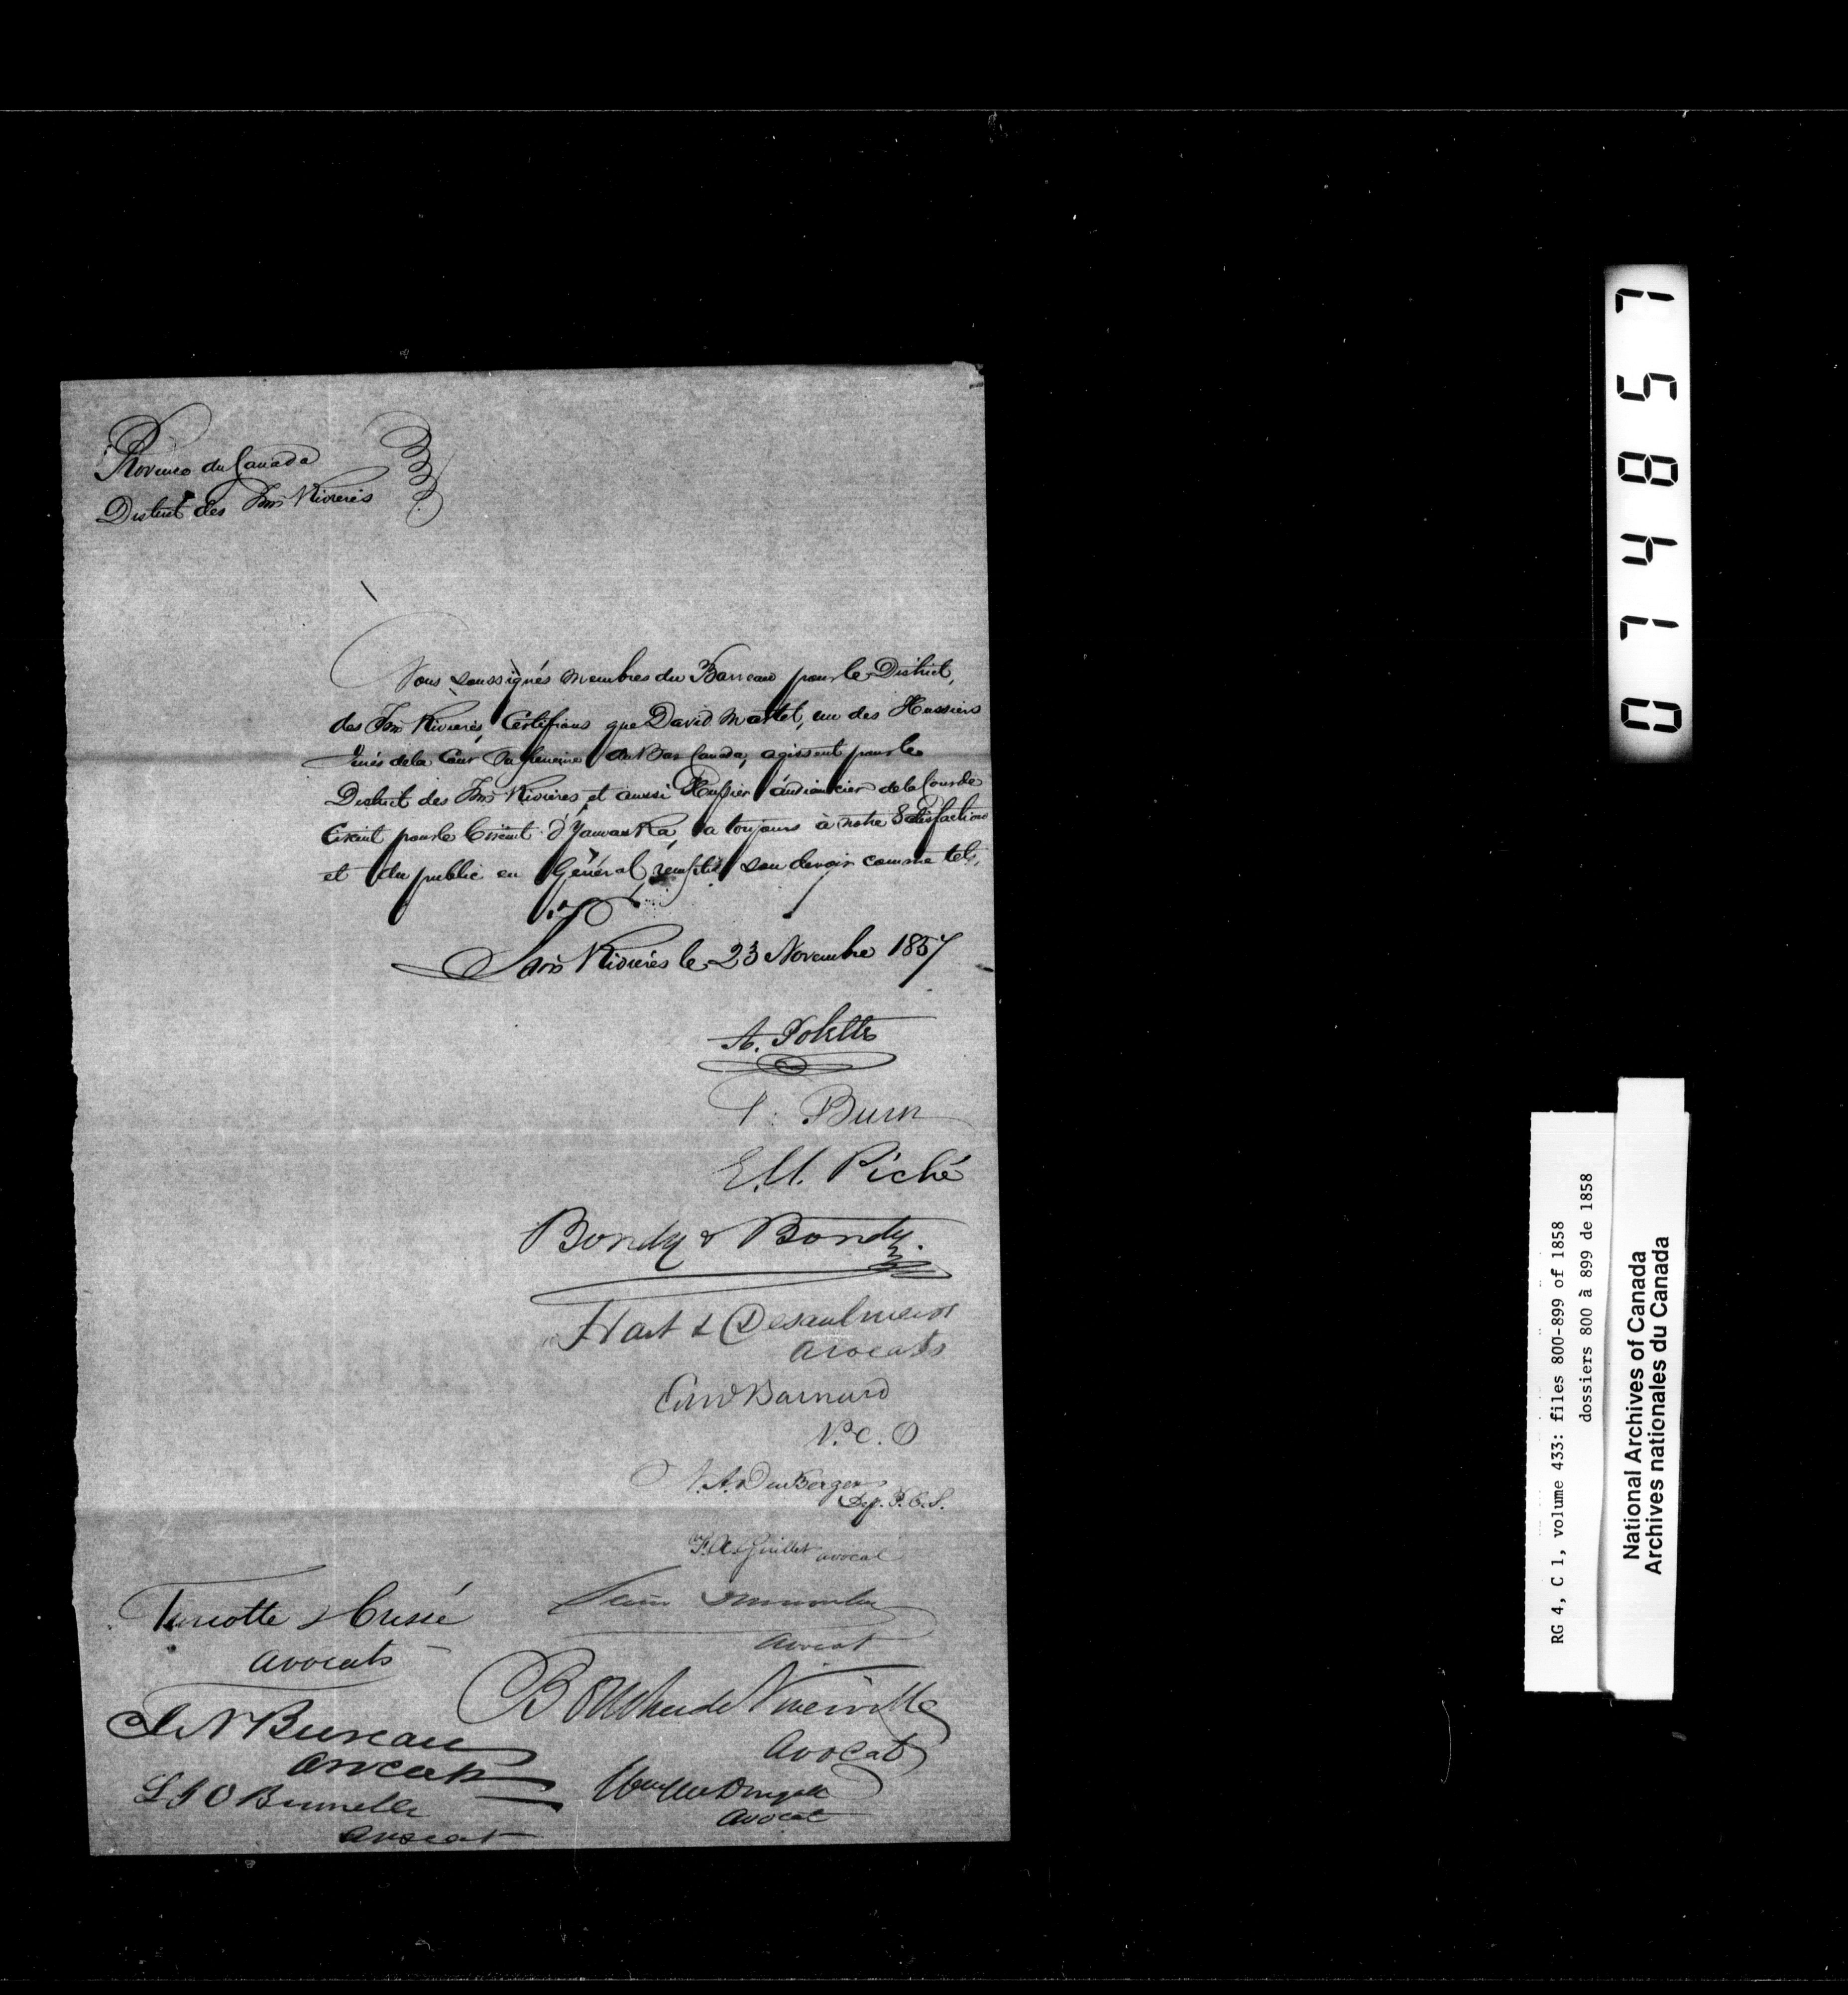 Province du Canada
District des Trois Rivierès
Nous soussignés membres du Barreau pour le District,
des Trois Rivierès, Certifions que David Martel, un des Hussiers
Jurés de la Cour Superieure du Bas Canada, agissant pour le
District des Trois Rivières, et aussi Hussier audiancier de la Cour de
Circuit pour le Circuit d'Yamaska, a toujours à notre Satisfaction
et du public en Général, remplie son devoir comme tels,
Trois Rivierès le 23 Novembre 1857
A. Polette
Burn
E.M. Piché
Bondy & Bondy
Hart & Desaulniers
avocats
Edw Barnard
P.C.S.
F.X. Guillet avocat
avocat
Turcotte & Cressé
avocats
Boucher de Niverville
Avocat
J. N Bureau
avocat
L J O Brunelle
avocat
Wm McDougall
avocat
074857
RG 4, C 1, volume 433: files 800-899 of 1858
dossiers 800 à 899 de 1858
National Archives of Canada
Archives nationales du Canada